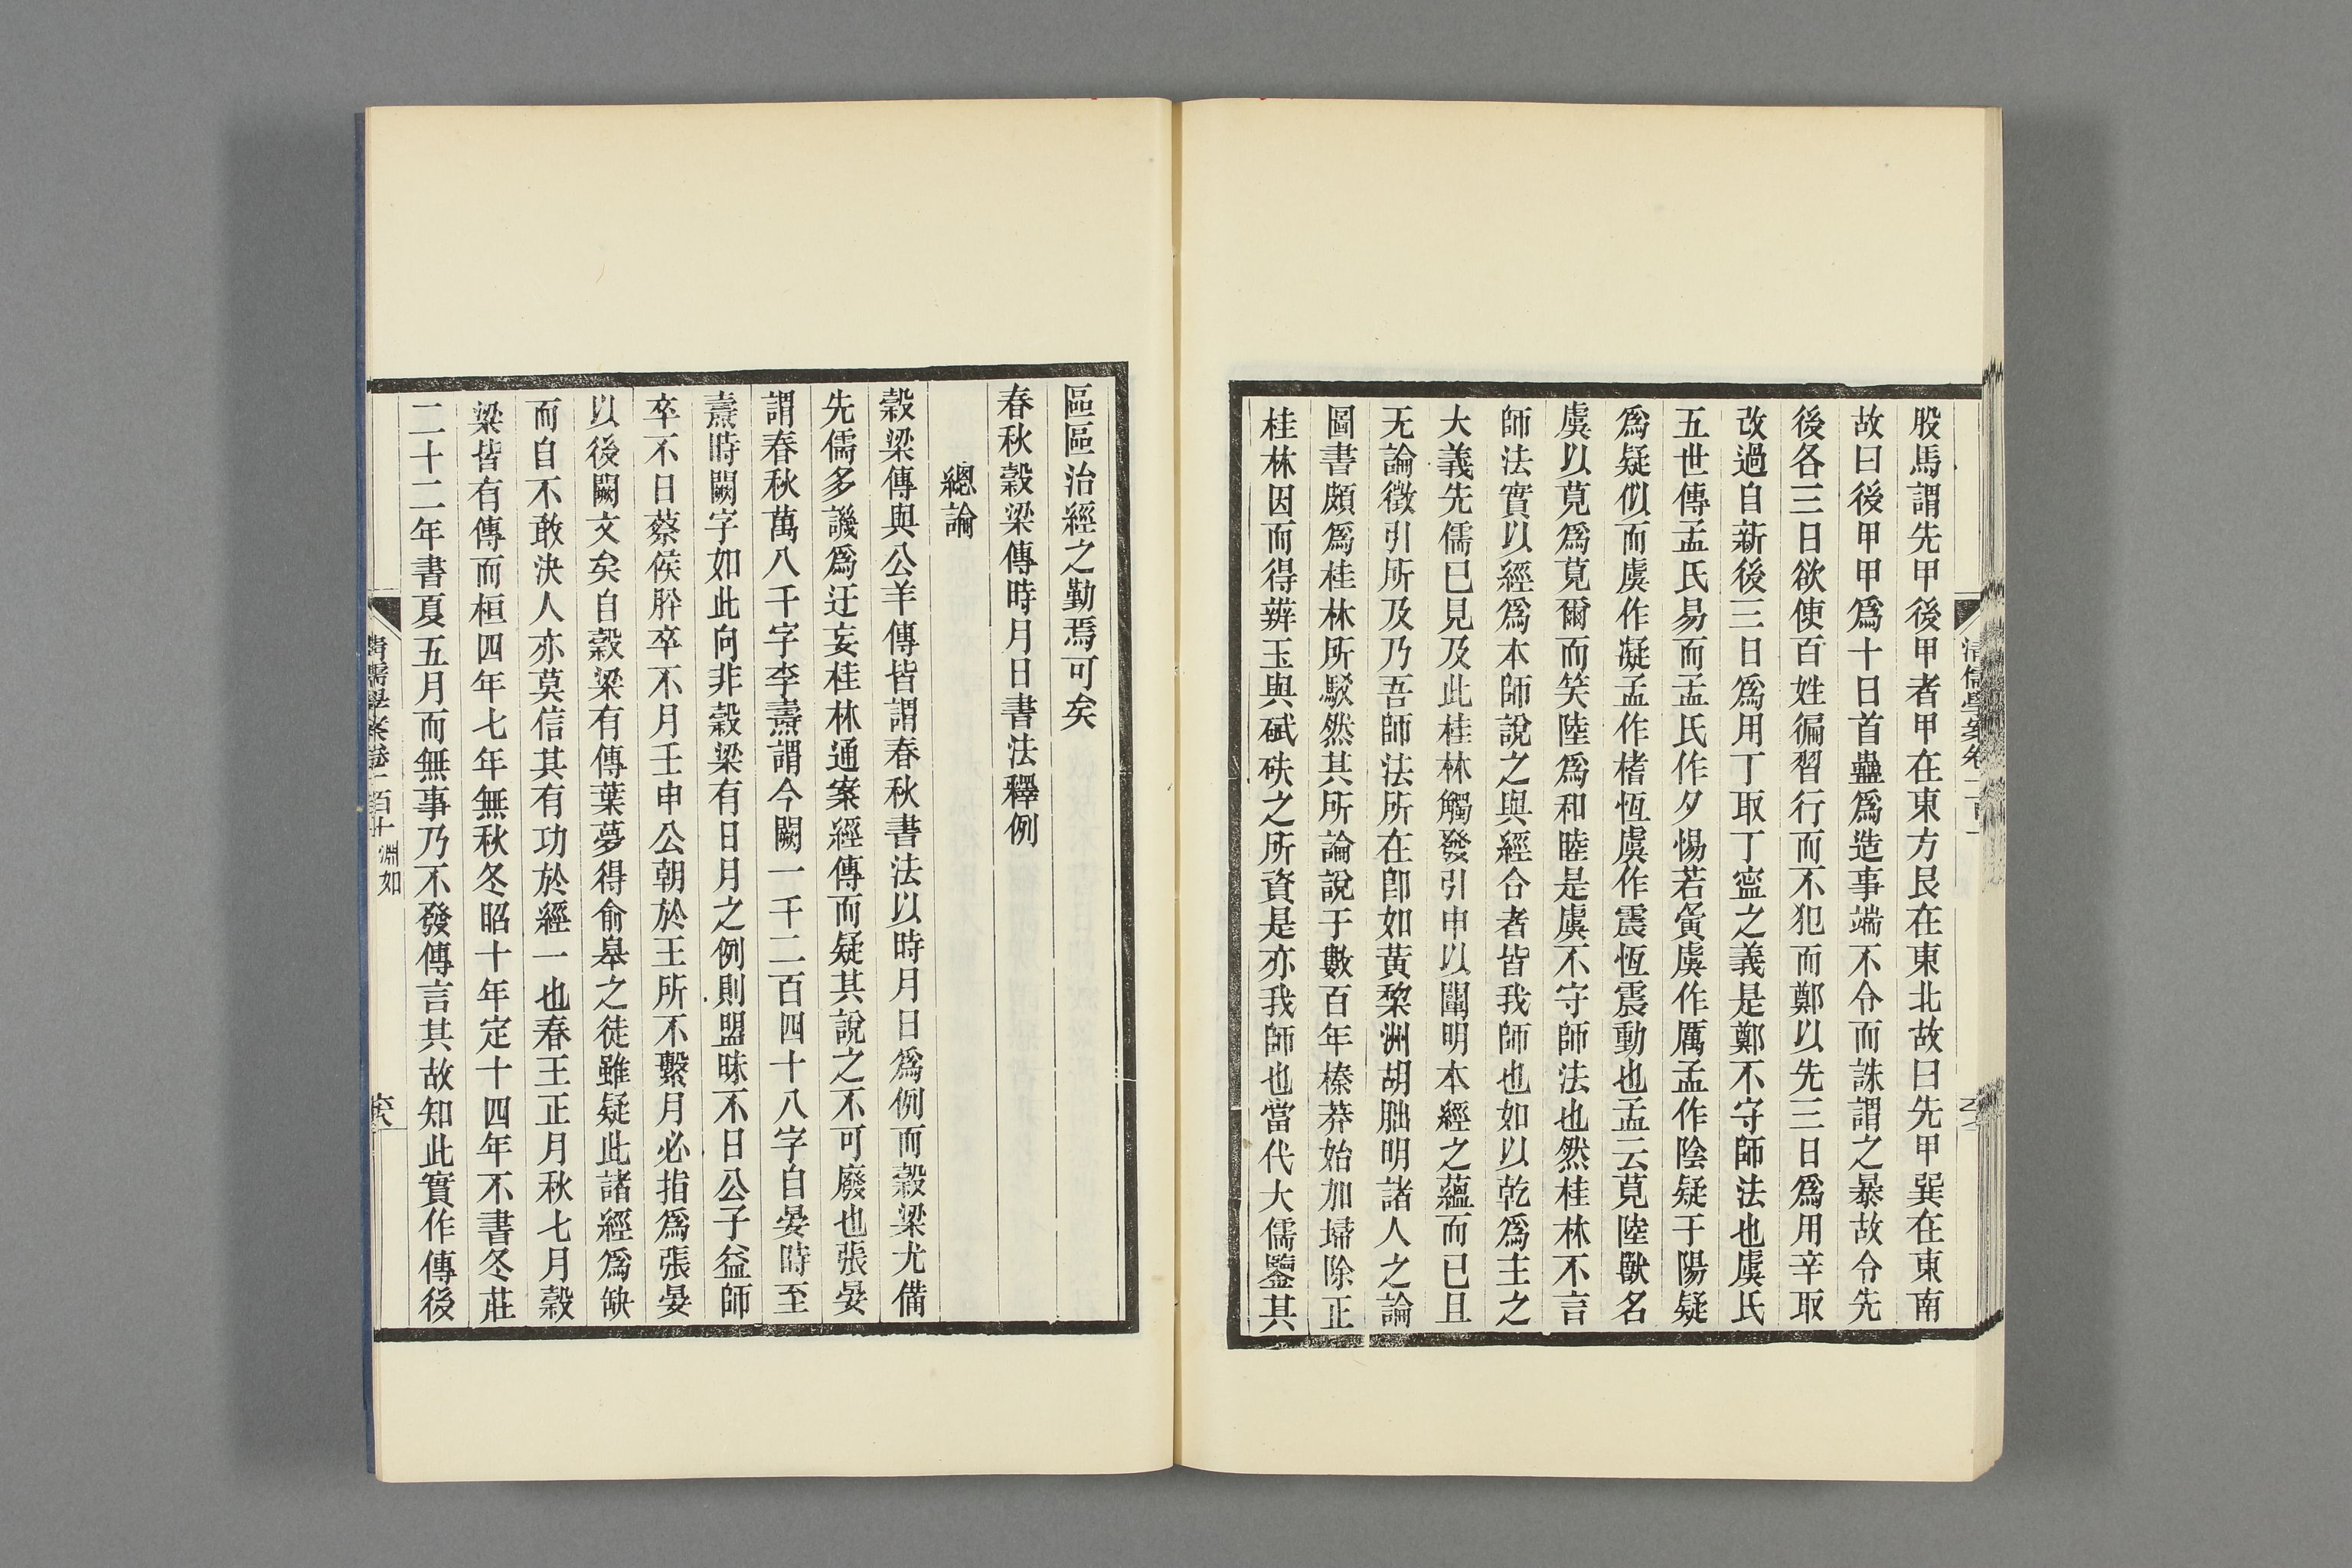 股馬謂先甲後甲者甲在東方艮在東北故曰先甲巽在東南
故曰後甲甲爲十日首蠱爲造事端不令而誅謂之暴故令先
後各三日欲使百姓徧習行而不犯而鄭以先三日爲用辛取
改過自新後三日爲用丁取丁寧之義是鄭不守師法也虞氏
五世傳孟氏易而孟氏作夕惕若夤虞作厲孟作陰疑于陽疑
爲疑似而虞作凝孟作楮恆虞作震恆震動也孟云莧陸獸名
虞以莧爲莧爾而笑陸爲和睦是虞不守師法也然桂林不言
師法實以經爲本師說之與經合者皆我師也如以乾爲主之
大義先儒已見及此桂林觸發引申以闡明本經之蘊而已且
无論徵引所及乃吾師法所在卽如黃棃洲胡朏明諸人之論
圖書頗爲桂林所駁然其所論說于數百年榛莽始加埽除正
桂林因而得辨玉與碔砆之所資是亦我師也當代大儒鑒其
區區治經之勤焉可矣
春秋穀梁傳時月日書法釋例
總論
穀梁傳與公羊傳皆謂春秋書法以時月日爲例而穀梁尤備
先儒多譏爲迂妄桂林通案經傳而疑其說之不可廢也張晏
謂春秋萬八千字李燾謂今闕一千二百四十八字自晏時至
燾時闕字如此向非穀梁有日月之例則盟昧不日公子益師
卒不日蔡侯肸卒不月壬申公朝於王所不繫月必指爲張晏
以後闕文矣自穀梁有傳葉夢得俞皋之徒雖疑此諸經爲缺
而自不敢決人亦莫信其有功於經一也春王正月秋七月穀
梁皆有傳而桓四年七年無秋冬昭十年定十四年不書冬莊
二十二年書夏五月而無事乃不發傳言其故知此實作傳後
清儒學案卷二百十 淵如
六八